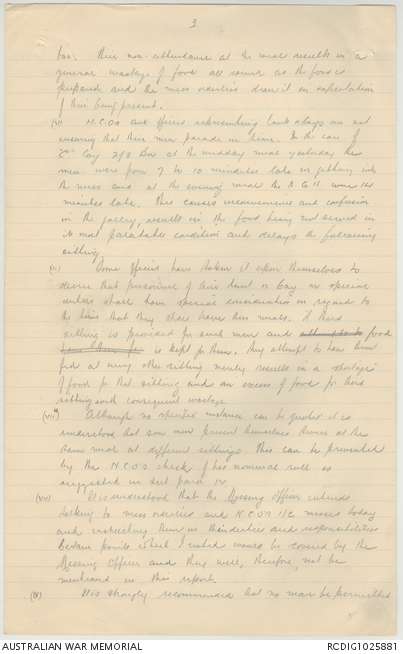 3
bar. Their non attendance at the meal results in a
general wastage of food all round as the food is
prepared and the mess orderlies draw it in expectation
of their being present.
(v) N.C.Os and officers representing units always are not
ensuring that their men parade in time. In the case of
"C" Coy 2/3 Bn at the midday meal yesterday the
men were from 7 to 10 minutes late in getting into
the mess and at the evening meal the were
minutes late. This causes inconvenience and confusion
in the galley, results in the food being not served in
its most palatable condition and delays the following
sitting.
(vi) Some officers have taken it upon themselves to
decree that personnel of their unit or Coy on special
duties shall have special consideration in regard to
the time that they shall have their meals. A third
sitting is provided for such men and food
is kept for them. They attempt to have them
fed at any other sitting merely results in a shortage
of food for that sitting and an excess of food for third
sitting with consequent wastage.
(vii) Although no specific instance can be quoted it is
understood that some men present themselves twice at the
same meal at different sittings. This can be prevented
by the N.C.Os check of his nominal roll as
suggested in sub para iv
(viii) It is understood that the Messing Officer intends
talking to mess orderlies and N.C.Os i/c messes today
and instructing them in their duties and responsibilities
Certain points which I noted would be covered by the
Messing Officer and they will, therefore, not be
mentioned in this report.
(ix) It is strongly recommended that no man be permitted
AUSTRALIAN WAR MEMORIAL
RCDIG1025881